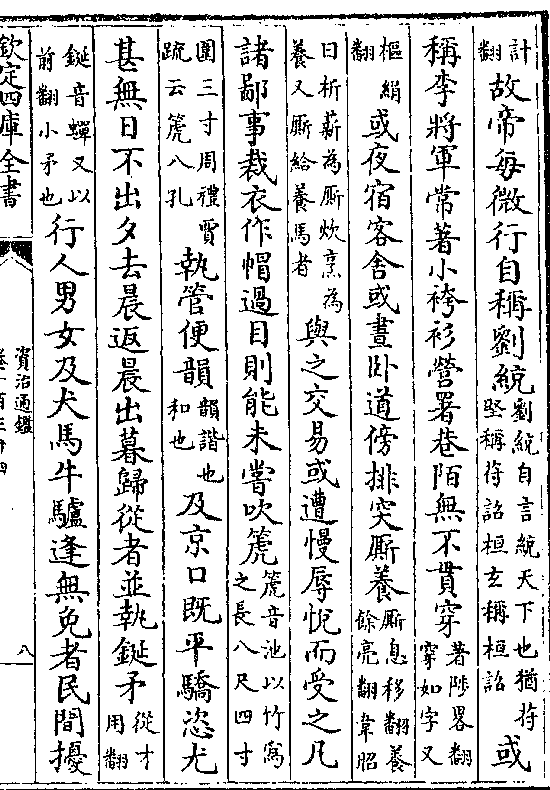 計翻故帝每微行自稱劉統劉統自言統天下也猶苻堅稱苻詔桓玄稱桓詔或
稱李將軍常著小袴衫營署巷陌無不貫穿著陟畧翻穿如字又
樞絹翻或夜宿客舍或晝卧道傍排突厮養厮息移翻養餘亮翻韋昭
曰析薪為厮炊烹為養又厮給養馬者與之交易或遭慢辱悅而受之凡
諸鄙事裁衣作帽過目則能未嘗吹篪篪音池以竹寫之長八尺四寸
圍三寸周禮賈疏云篪八孔執管便韻韻諧也和也及京口既平驕恣尤
甚無日不出夕去晨返晨出暮歸從者並執鋋矛從才用翻
鋋音蟬又以前翻小矛也行人男女及犬馬牛驢逢無免者民間擾
欽定四庫全書
資治通鑑
卷一百三十四
八